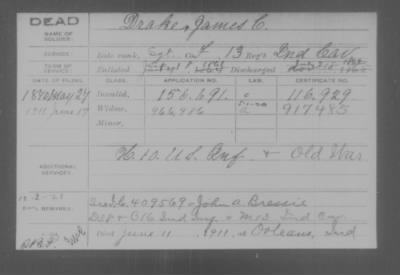 DEAD
NAME OF SOLDIER:
Drake, James C.
SERVICE:
Late rank, Sgt. Co. L, 13 Reg't Ind Cav
TERM OF SERVICE:
Enlisted Discharged
DATE OF FILING.
CLASS.
APPLICATION NO.
LAW.
CERTIFICATE NO.
1880 May 27
Invalid,
156.691.
116.929
1911 June 19
Widow,
966986
917485
Minor,
ADDITIONAL SERVICES:
H. 10. U.S. Inf. & Old War
REMARKS:
409569 John A. Bressie
D58 & C16 Ind Inf & M13 Ind Cav
Died June 11, 1911, at Orleans, Ind